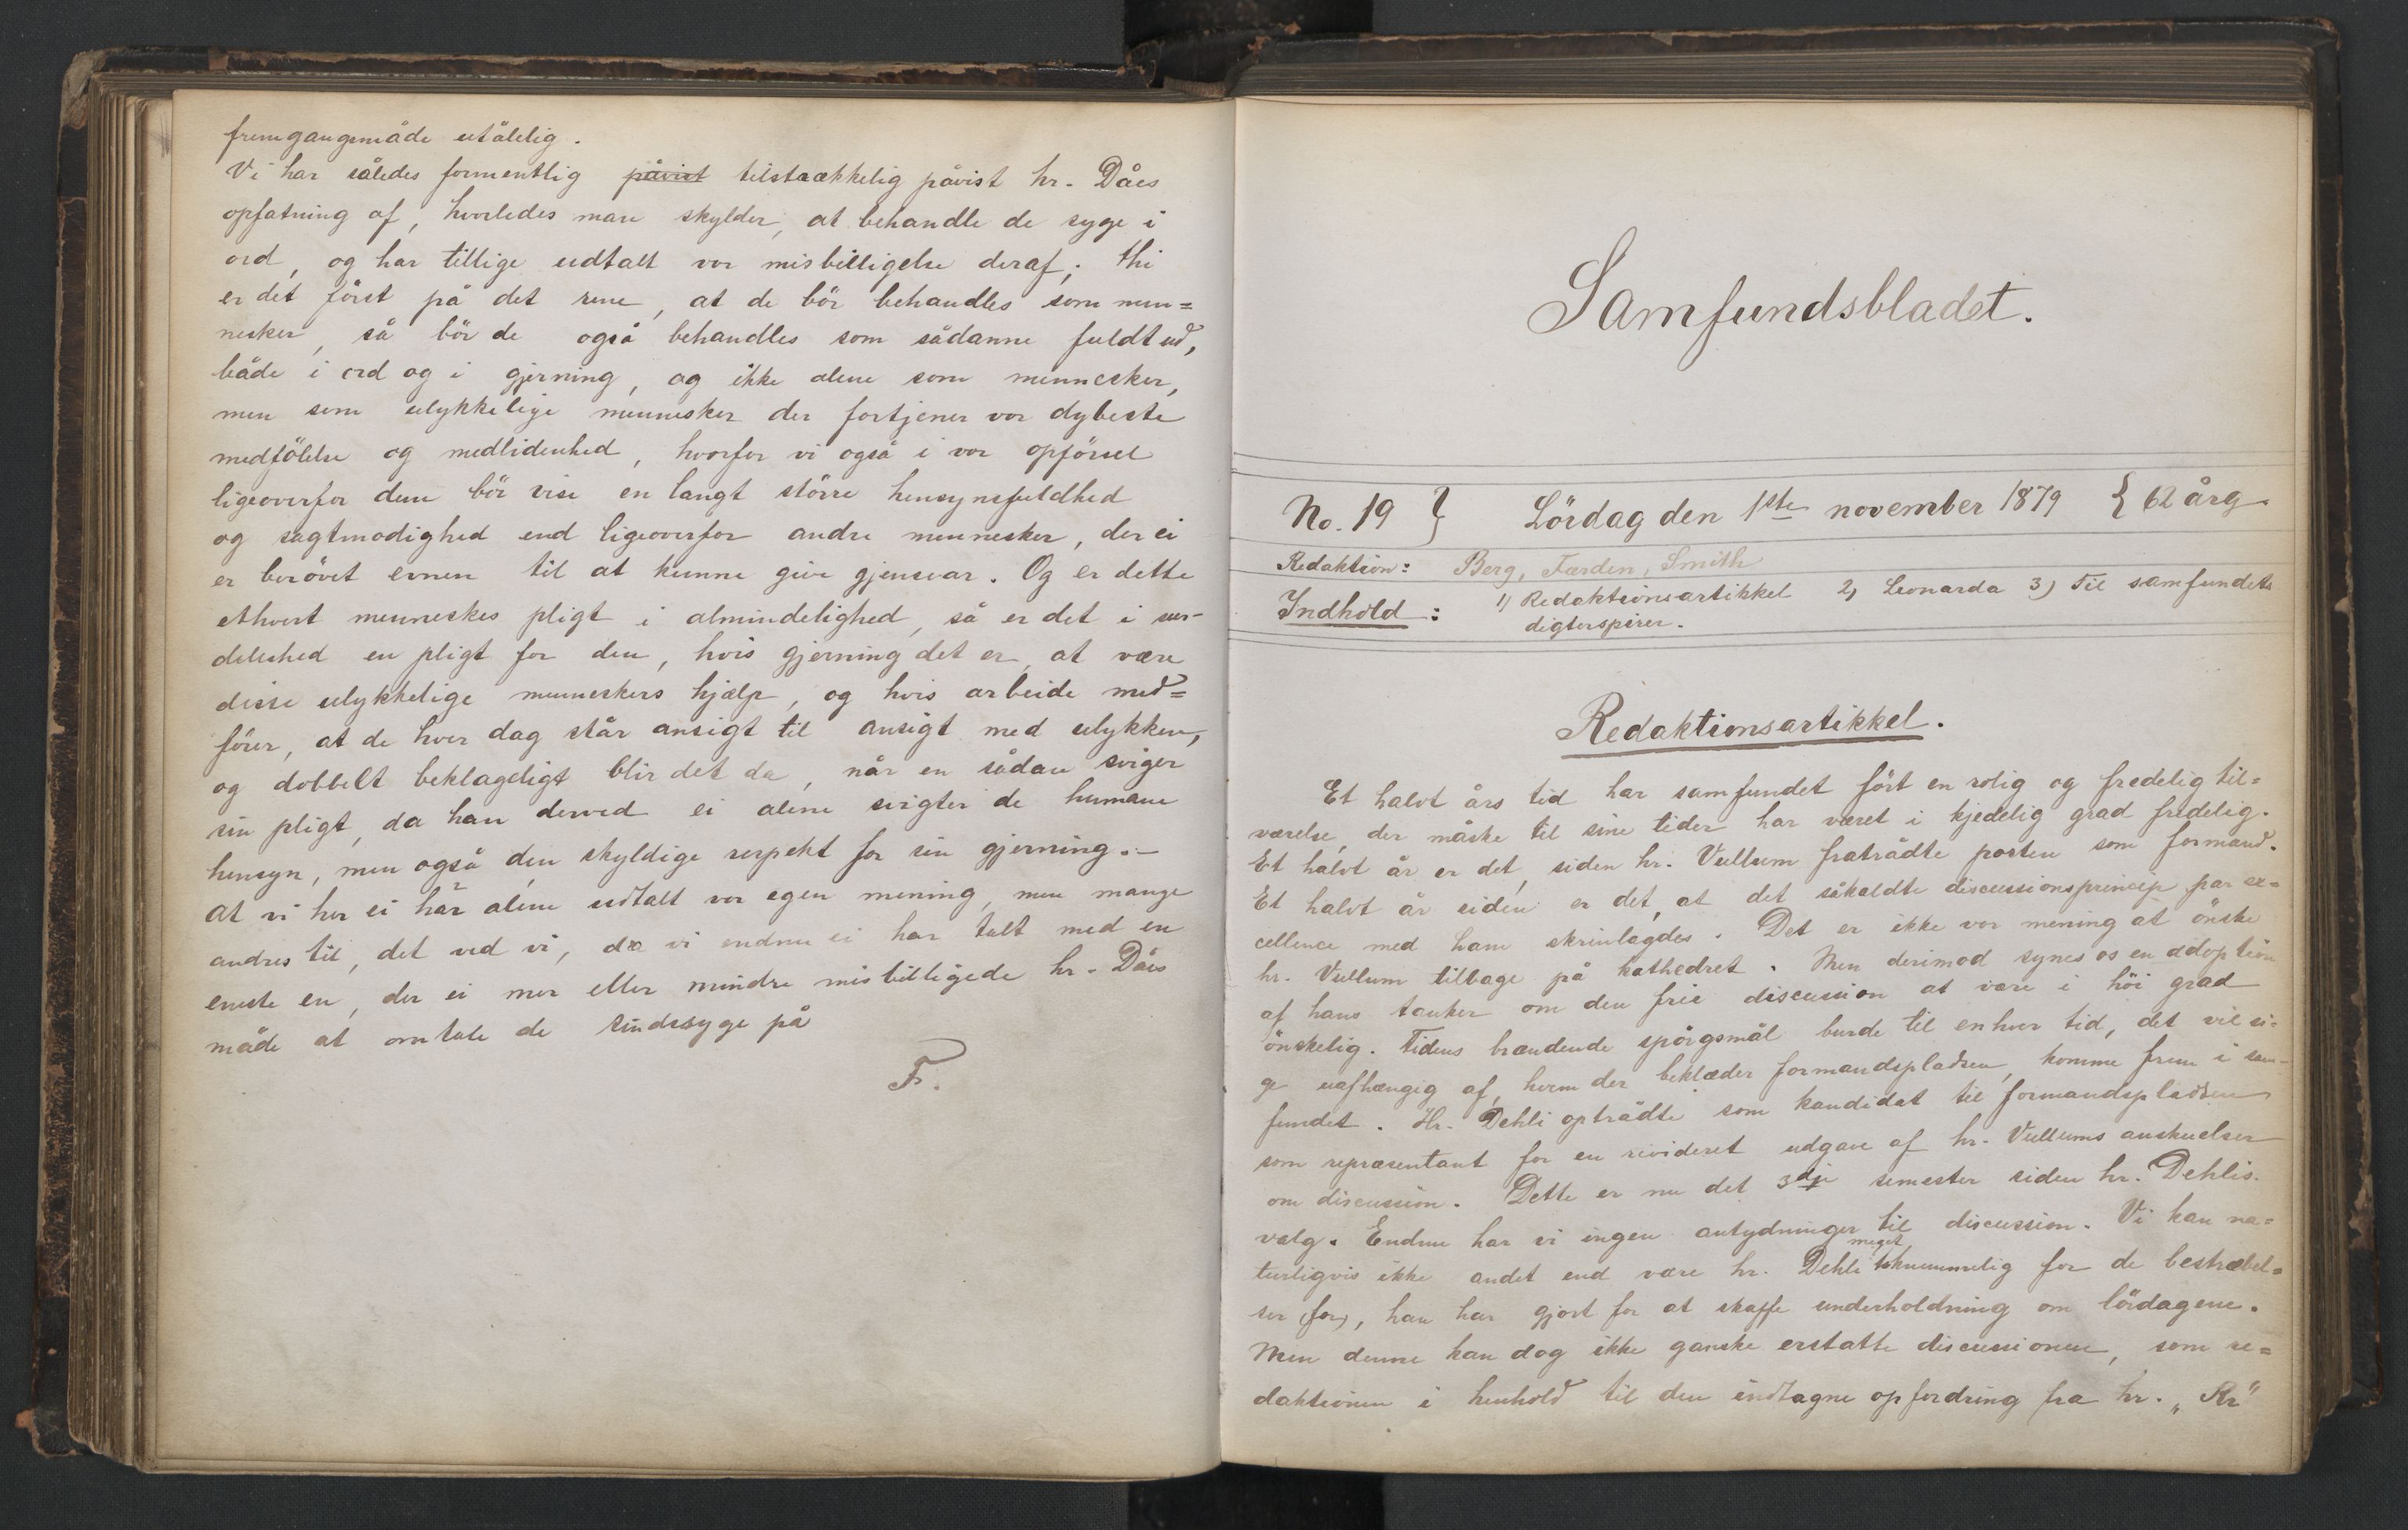 fremgangsmåde utålelig.
Vi har således formentlig påvist tilstrækkelig påvist hr. Dåes
opfatning af, hvorledes man skylder, at behandle de syge i
ord, og har tillige udtalt vor misbilligelse deraf; thi
er det först på det rene, at de bör behandles som men=
nesker, så bör de også behandles som sådanne fuldt ud,
både i ord og i gjerning, og ikke alene som mennesker,
men som ulykkelige mennesker der fortjener vor dybeste
medfölelse og medlidenhed, hvorfor vi også i vor opförsel
ligeoverfor dem bör vise en langt större hensynsfuldhed
og sagtmodighed end ligeoverfor andre mennesker, der ei
er berövet evnen til at kunne give gjensvar. Og er dette
ethvert menneskes pligt i almindelighed, så er det i sær-
deleshed en pligt for den, hvis gjerning det er, at være
disse ulykkelige menneskers hjælp, og hvis arbeide med=
förer, at de hver dag står ansigt til ansigt med ulykken,
og dobbelt beklageligt blir det da, når en sådan sviger
sin pligt, da han derved ei alene svigter de humane
hensyn, men også den skyldige respekt for sin gjerning.-
At vi her ei har alene udtalt vor egen mening, men mange
andres til, det ved vi, da vi endnu ei har talt med en
eneste en, der ei mer eller mindre misbilligede hr. Dåes
måde at omtale de sindssyge på
F.
Samfundsbladet.
No. 19 } Lördag den 1ste november 1879 { 62 årg.
Redaktion: Berg, Færden, Smith
Indhold: 1) Redaktionsartikkel 2) Leonarda 3) Til samfundets
digterspirer.
Redaktionsartikkel.
Et halvt års tid har samfundet fört en rolig og fredelig til=
værelse, der måske til sine tider har været i kjedelig grad fredelig.
Et halvt år er det, siden hr. Vullum fratrådte posten som formand.
Et halvt år siden er det, at det såkaldte discussionsprincip par ex=
cellence med ham skrinlagdes. Det er ikke vor mening at önske
hr. Vullum tilbage på kathedret. Men derimod synes os en adoption
af hans tanker om den frie discussion at være i höi grad
önskelig. Tidens brændende spörgsmål burde til enhver tid, det vil si-
ge uafhængig af, hvem der beklæder formandspladsen, komme frem i sam-
fundet. Hr. Dehli optrådte som kandidat til formandspladsen
som repræsentant for en revideret udgave af hr. Vullums anskuelser
om discussion. Dette er nu det 3dje semester siden hr. Dehlis.
valg. Endnu har vi ingen antydninger til discussion. Vi kan na=
turligvis ikke andet end være hr. Dehli meget taknemmelig for de bestræbel=
ser (for), han har gjort for at skaffe underholdning om lördagene.
Men denne kan dog ikke ganske erstatte discussionen, som re=
daktionen i henhold til den indtagne opfordring fra hr. „Kr"